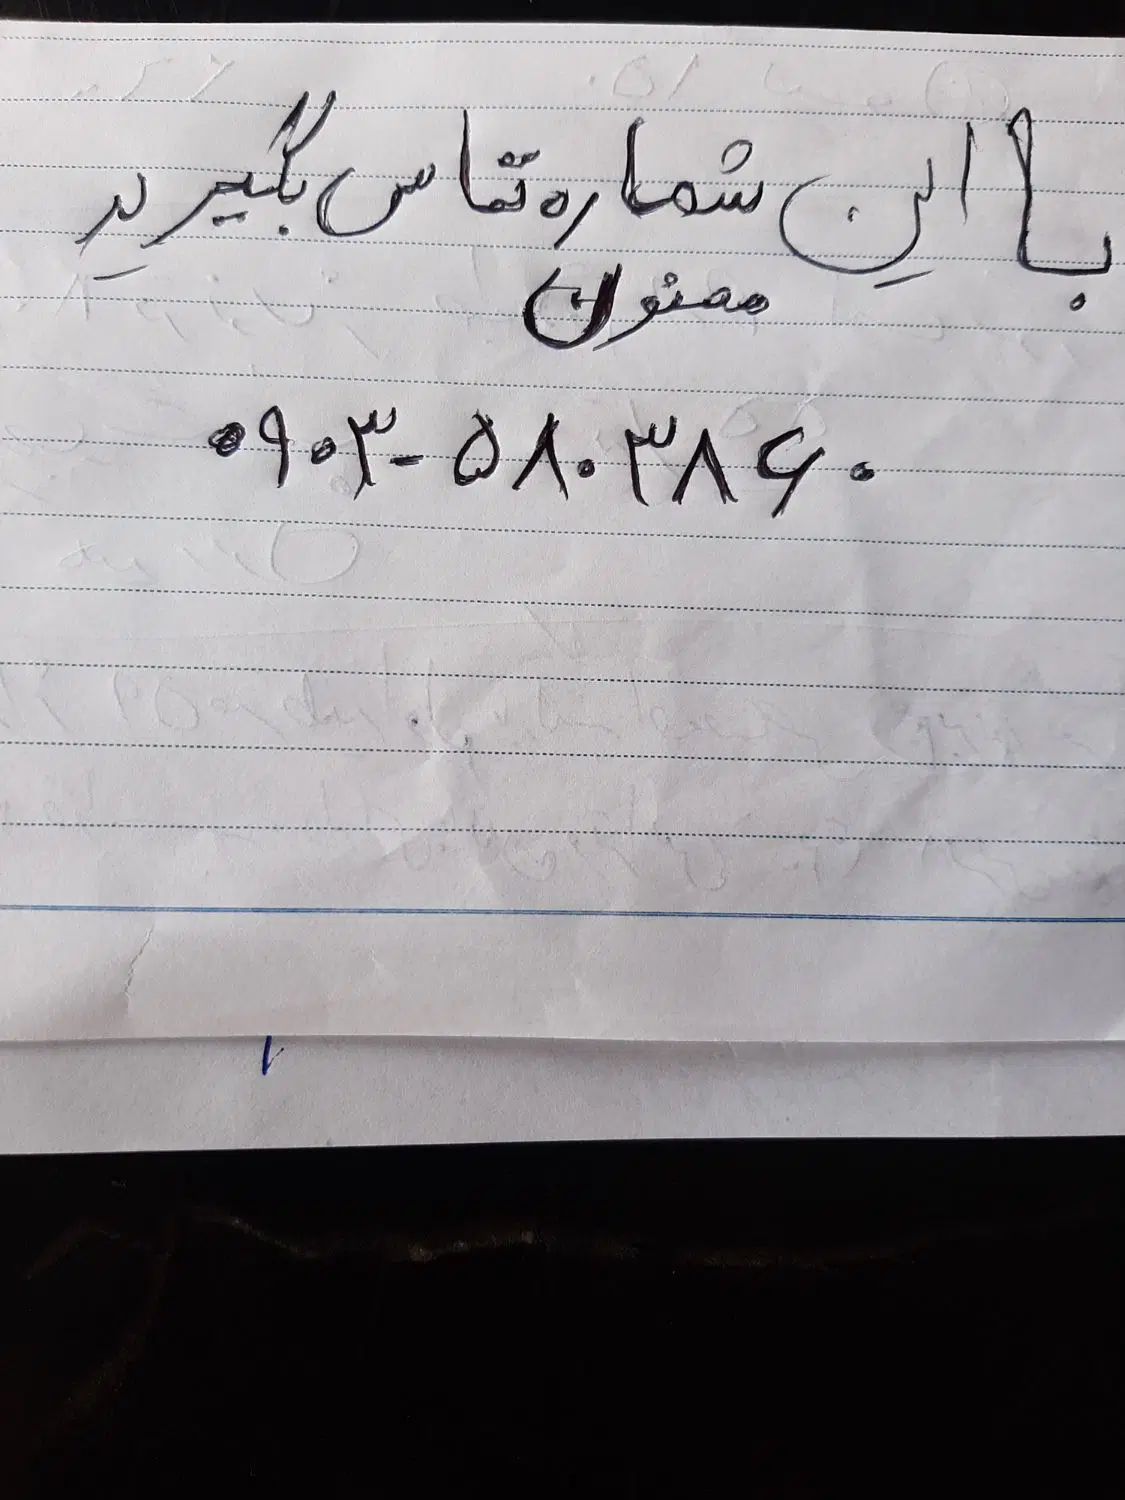 با این شماره تماس بگیرید
ممنون
۰۹۰۳-۵۸۰۳۸۶۰